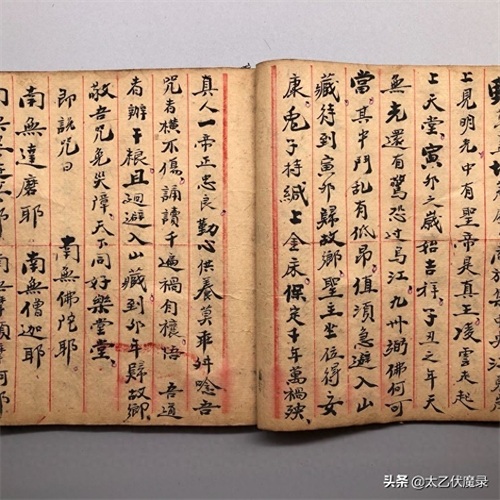 上見明九中有聖帝是真王凌雲走起
上天堂寅卯之歲招吉祥子丑之年天
無光還有驚恐过烏江九州弥佛何可
當其中鬥乱有低昂值須急避入山
藏待到寅卯歸故鄉聖主坐位得安
康兎子持緘上金床保定千年萬禍殃
真人一帝正忠良勤心供養莫乖舛唸吾
咒者橫不傷誦讀千遍禍自穰悟 吾道
者辦干粮且迴避入山藏到卯年歸故鄉
敬吾咒免災障天下同好樂堂堂
即説咒曰 南無佛陀耶
南無達磨耶 南無僧迦耶
头条 @太乙伏魔录